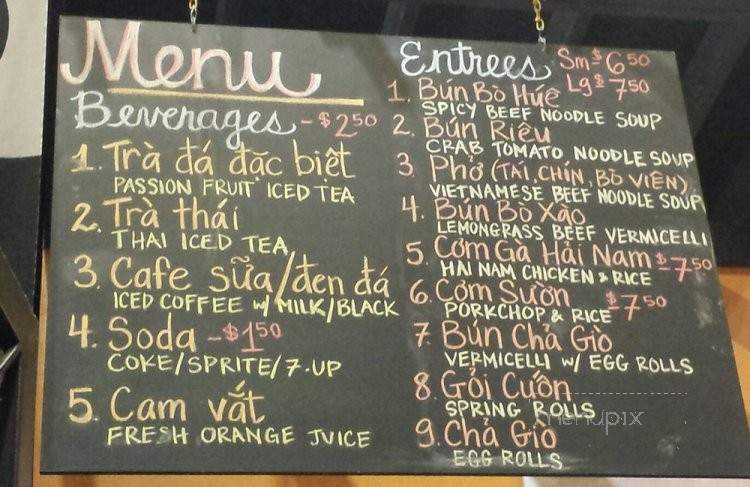 Menu
Beverages - $2.50
1. Trà đá đặc biệt
PASSION FRUIT ICED TEA
2. Trà thái
THAI ICED TEA
3. Cafe sữa/đen đá
ICED COFFEE w/ MILK/BLACK
4. Soda - $1.50
COKE/SPRITE/7-UP
5. Cam vắt
FRESH ORANGE JUICE
Entrees Sm - $6.50
Lg $7.50
1. Bún Bò Huế
SPICY BEEF NOODLE SOUP
2. Bún Riêu
CRAB TOMATO NOODLE SOUP
3. Phở (TAI, CHÍN, BÒ VIÊN)
VIETNAMESE BEEF NOODLE SOUP
4. Bún Bò Xào
LEMONGRASS BEEF VERMICELLI
5. Cơm Gà Hải Nam - $7.50
HAI NAM CHICKEN & RICE
6. Cơm Sườn $7.50
PORKCHOP & RICE
7. Bún Chả Giò
VERMICELLI w/ EGG ROLLS
8. Gỏi Cuốn
SPRING ROLLS
9. Chả Giò
EGG ROLLS
menupix